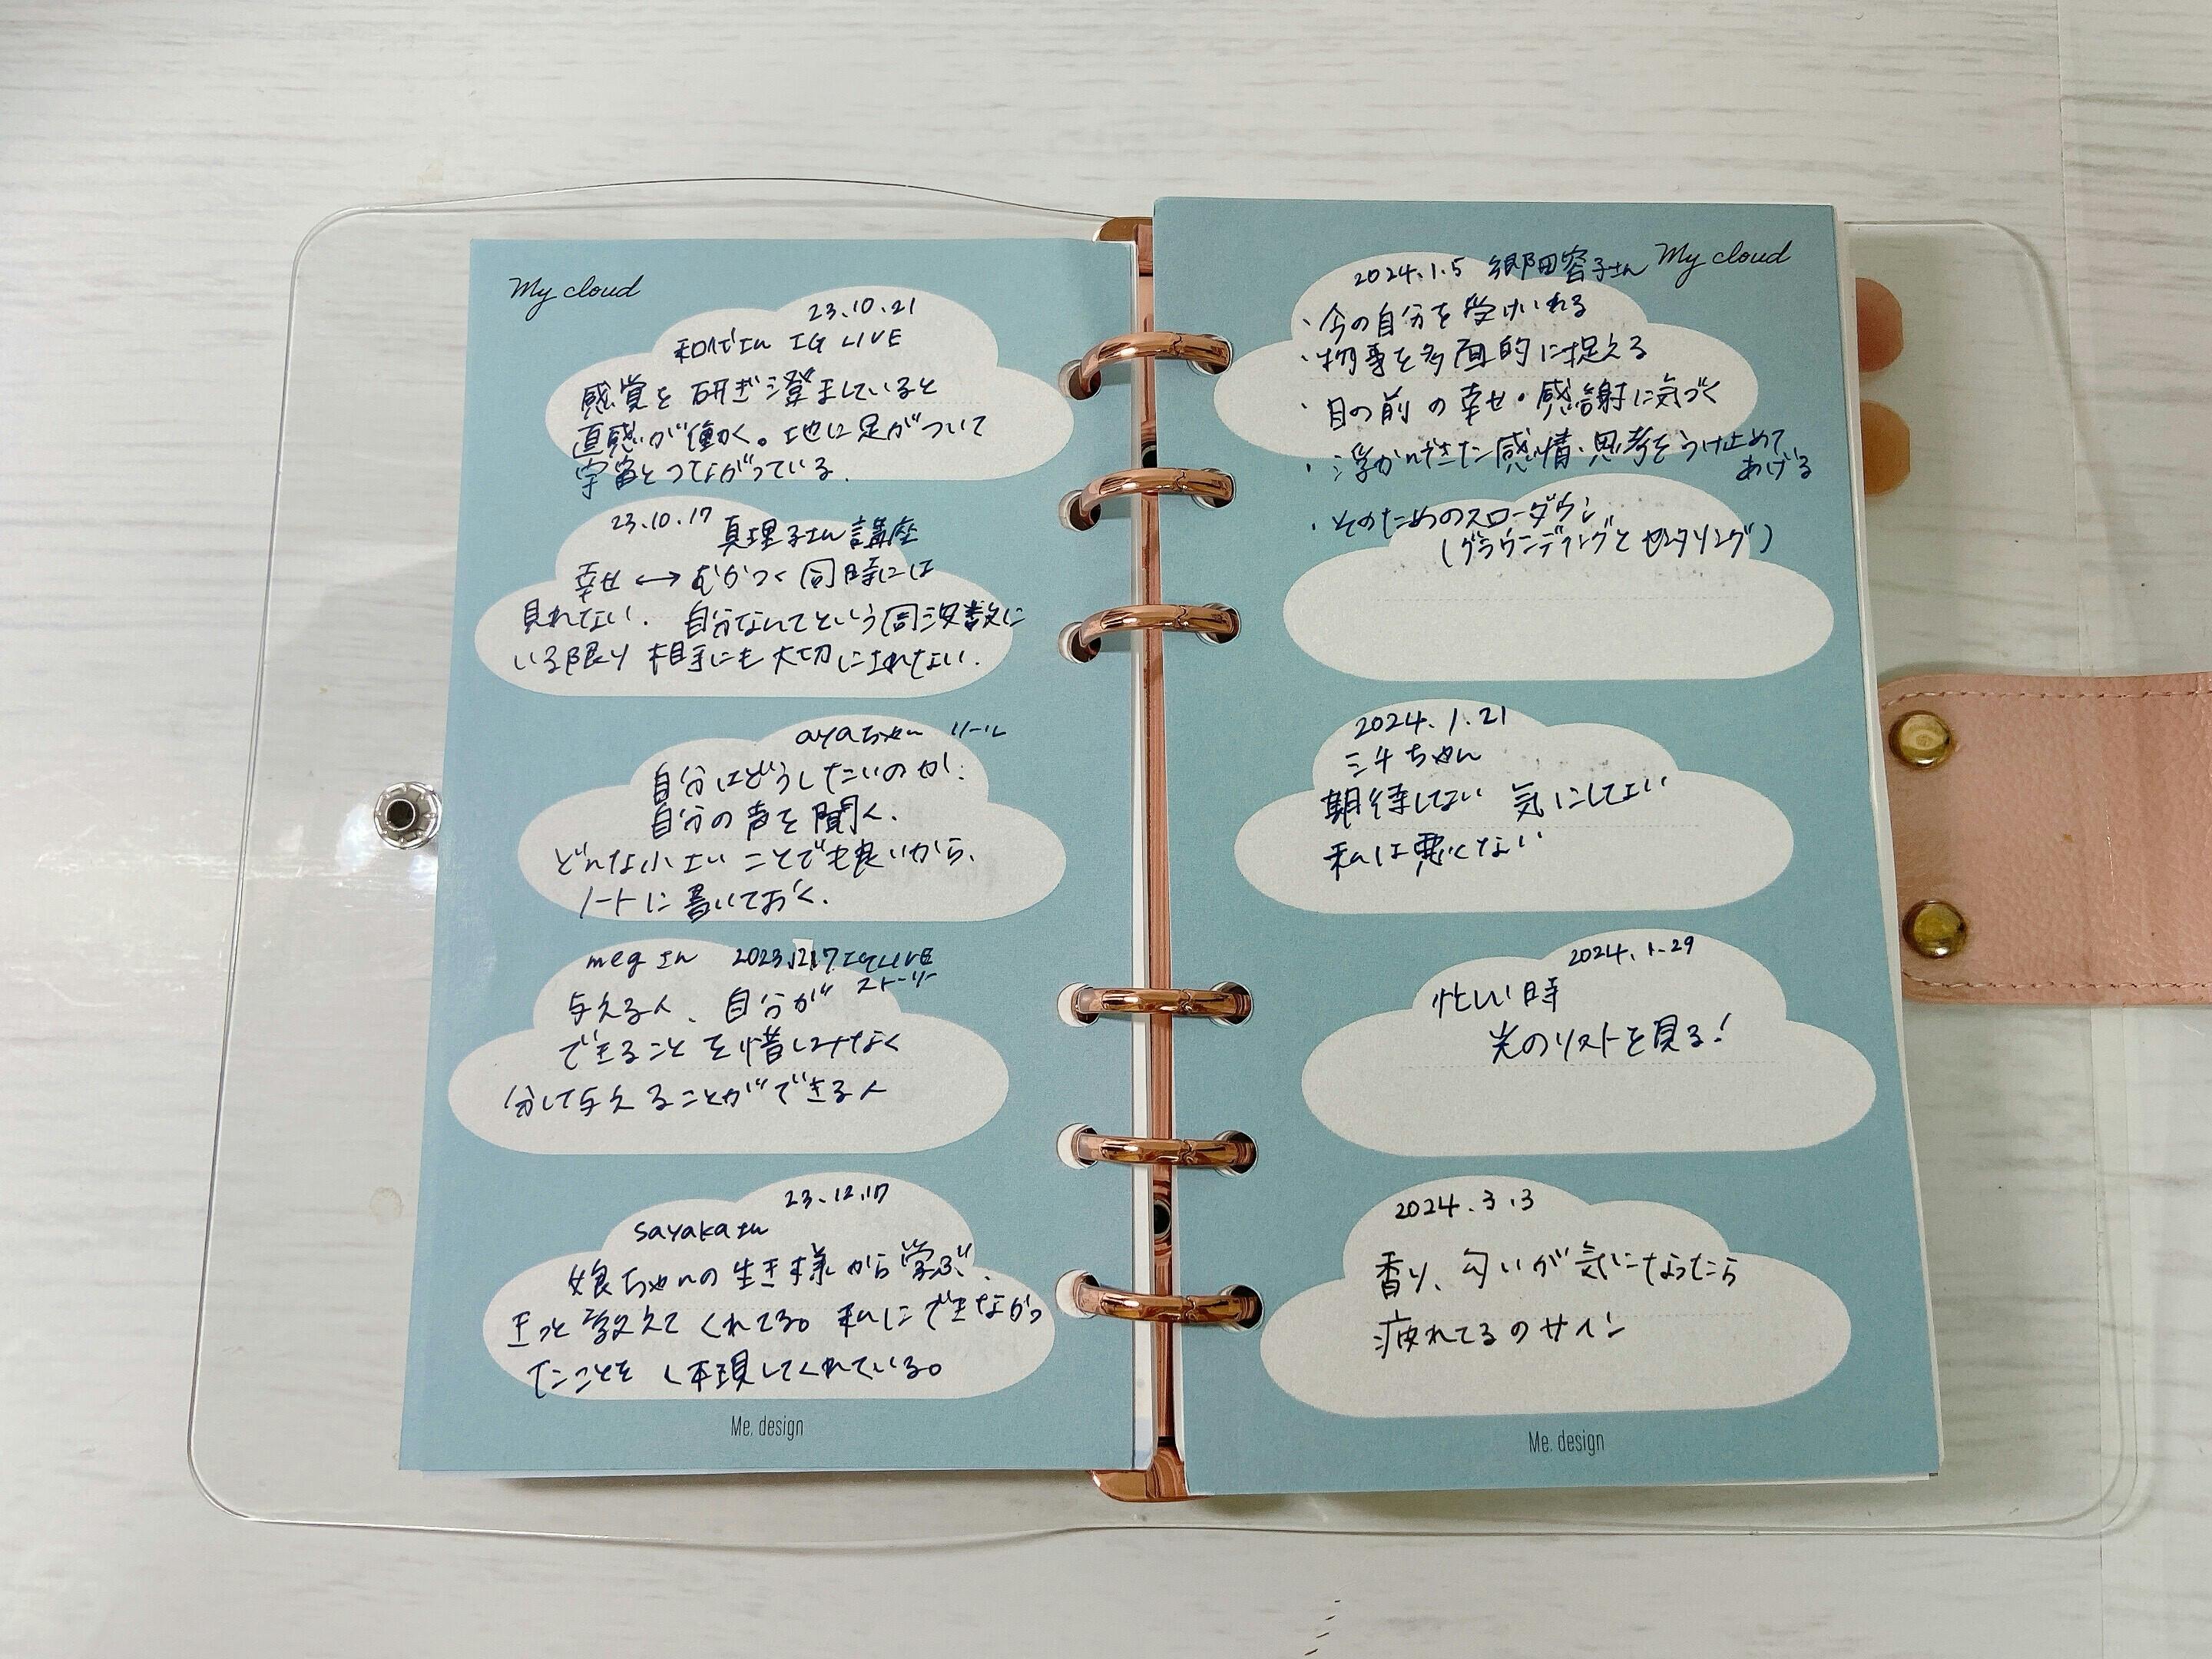 My cloud
23.10.21
さん IG LIVE
感覚を研ぎ澄ましていると
直感が働く。地に足がついて
宇宙とつながっている.
23.10.17 真理子さん講座
幸せ ↔ むかつく 同時には
見れない. 自分なんてという周波数に
いる限り 相手にも大切にされない.
ayaちゃん リール
自分はどうしたいのか.
自分の声を聞く.
どんな小さいことでも良いから、
ノートに書いておく.
megさん 2023.12.17 IG LIVE
ストーリー
与える人、自分が
できることを惜しみなく
分して与えることができる人
23.12.17
sayakaさん
娘ちゃんの生き様から学ぶ.
きっと教えてくれてる。私にできなかっ
たことを 体現してくれている。
Me. design
My cloud
2024.1.5 郷田容子さん
・今の自分を受けいれる
・物事を多面的に捉える
・目の前の幸せ・感謝に気づく
・浮かんできた感情・思考をうけ止めて
あげる
・そのためのスローダウン
(グラウンディングとセンタリング)
2024.1.21
ミキちゃん
期待してない 気にしてない
私は悪くない
2024.1.29
忙しい時
光のリストを見る!
2024.3.3
香り、匂いが気になったら
疲れてるのサイン
Me. design